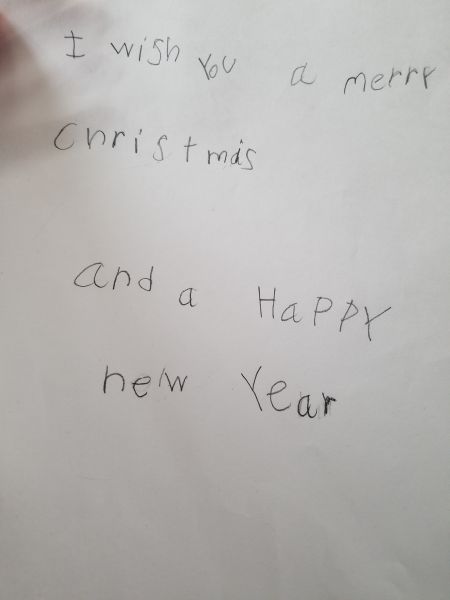 I wish You a merry
christmas
and a HaPPY
new Year